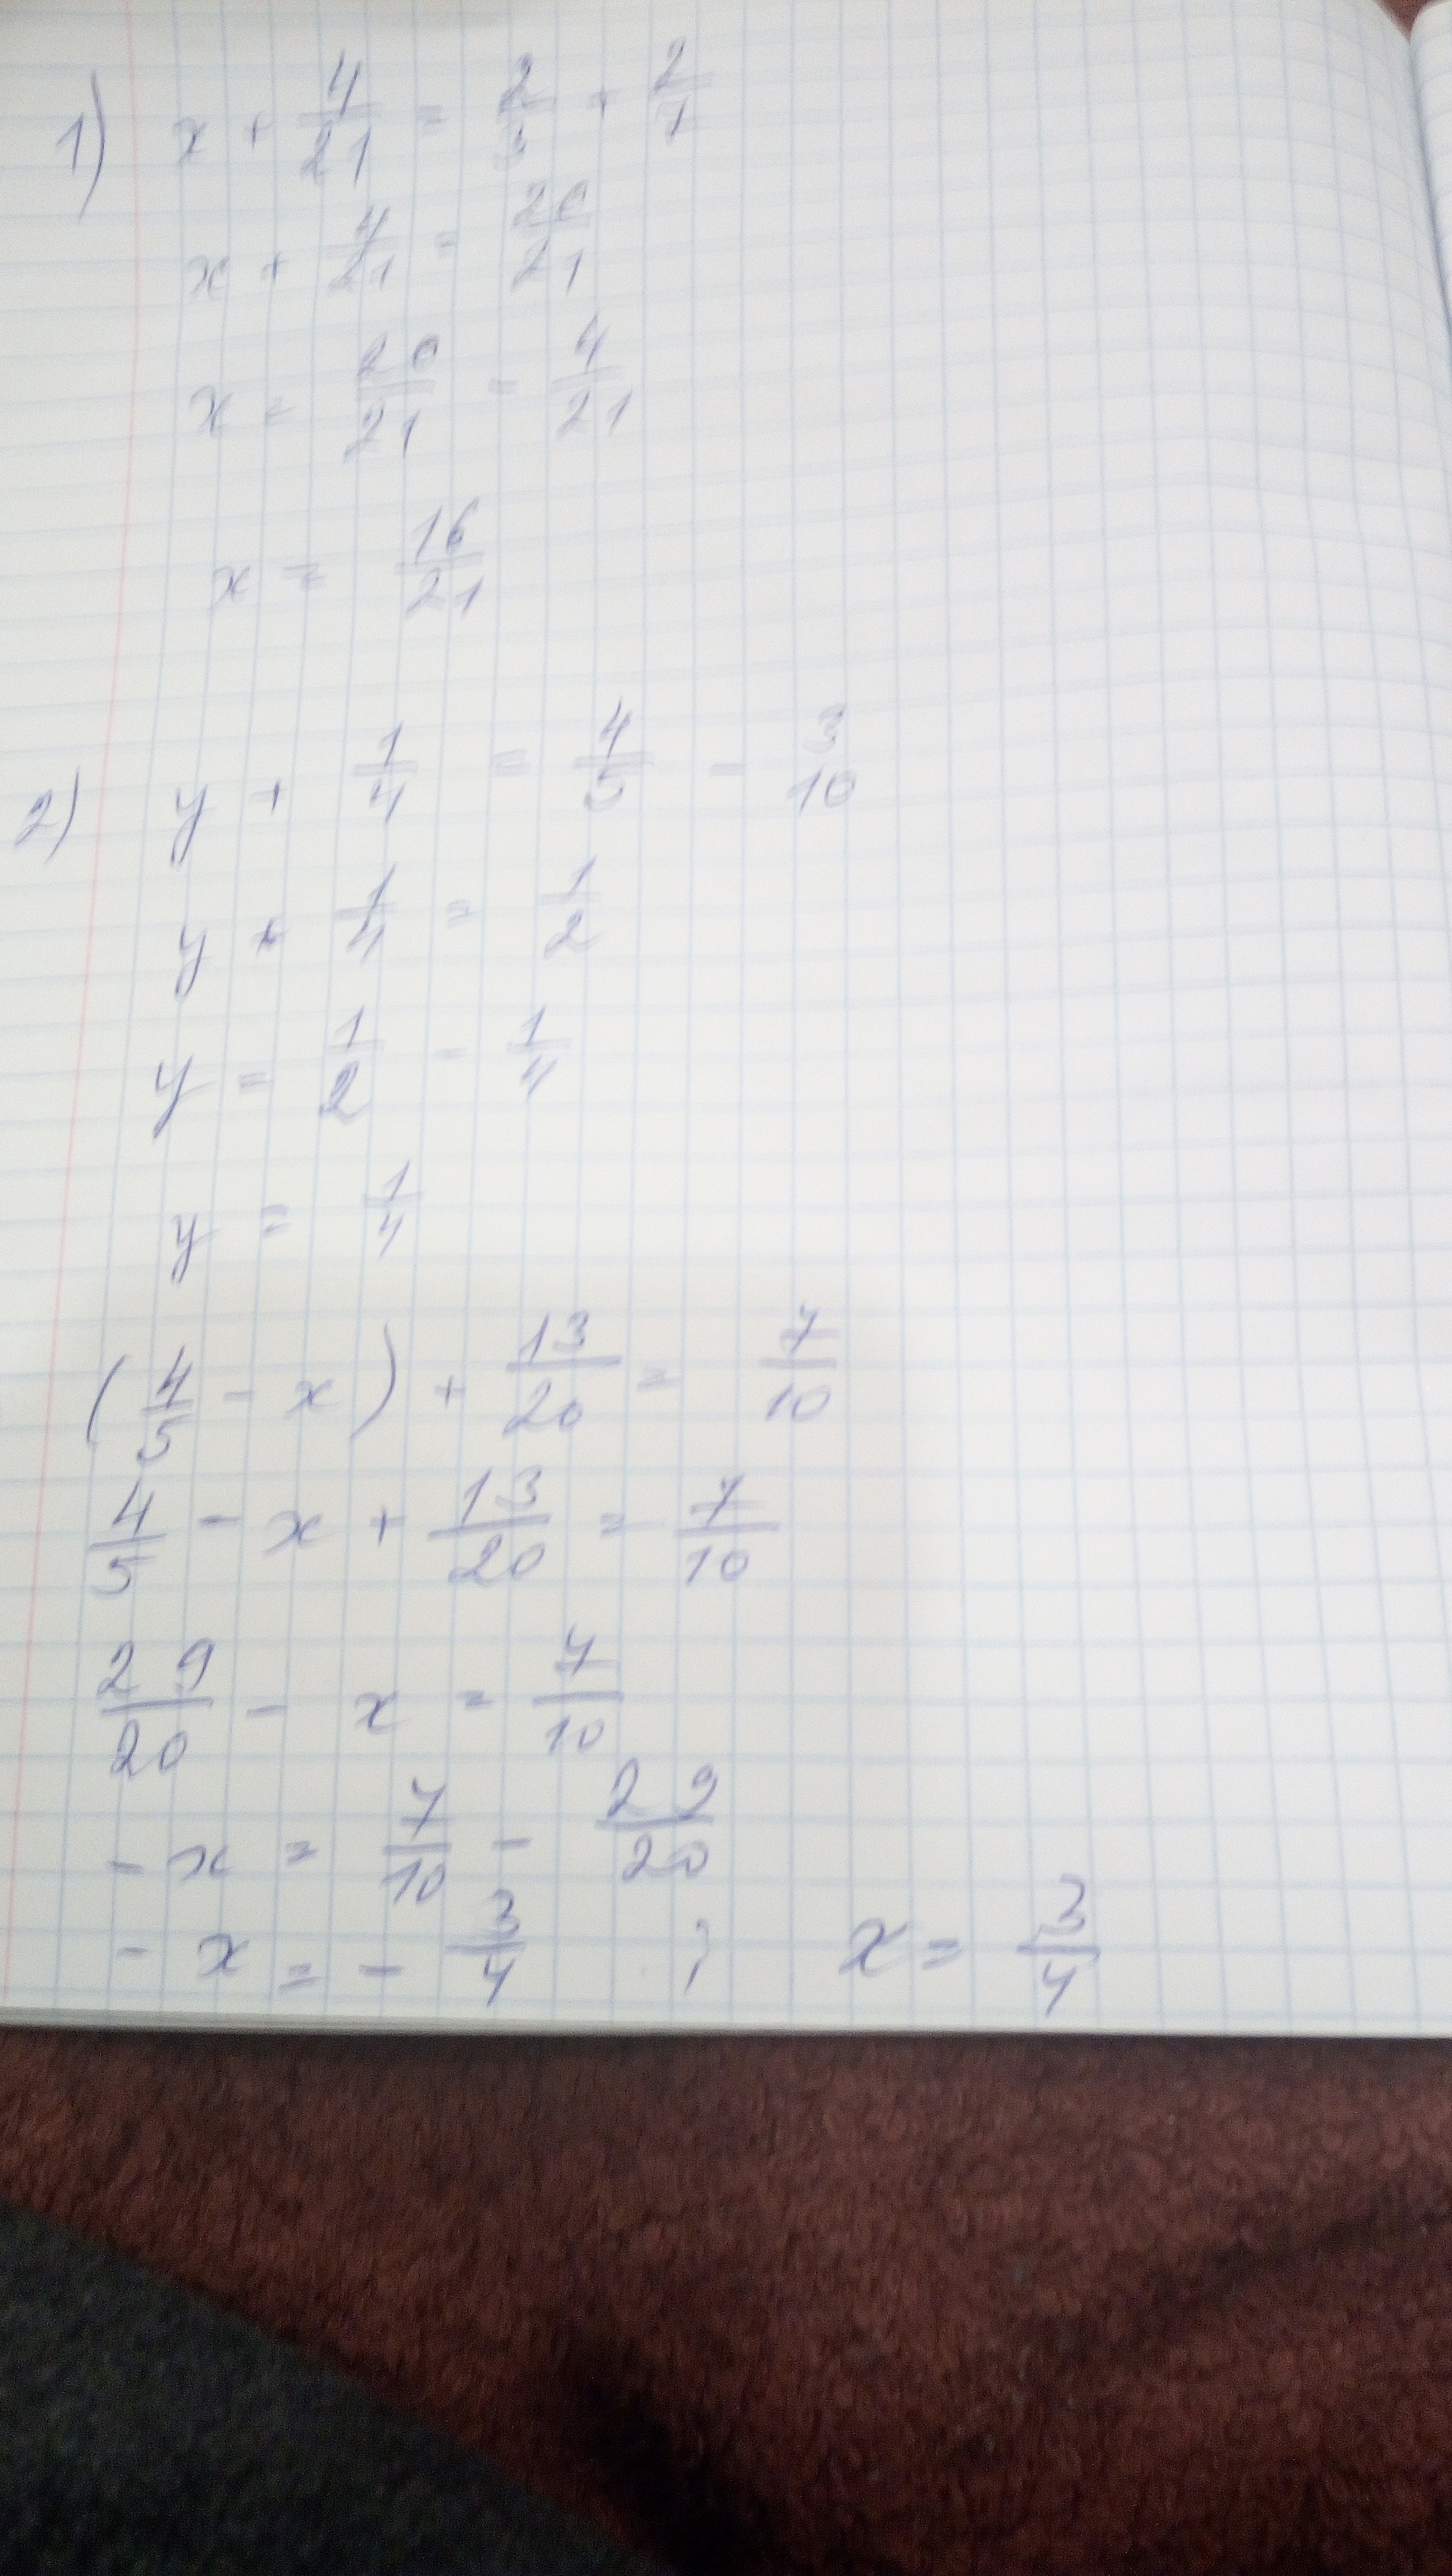 1) x + 4/21 = 2/3 + 2/7
x + 4/21 = 20/21
x = 20/21 - 4/21
x = 16/21
2) y + 1/4 = 4/5 - 3/10
y + 1/4 = 1/2
y = 1/2 - 1/4
y = 1/4
(4/5 - x) + 13/20 = 7/10
4/5 - x + 13/20 = 7/10
29/20 - x = 7/10
- x = 7/10 - 29/20
- x = - 3/4 ; x = 3/4